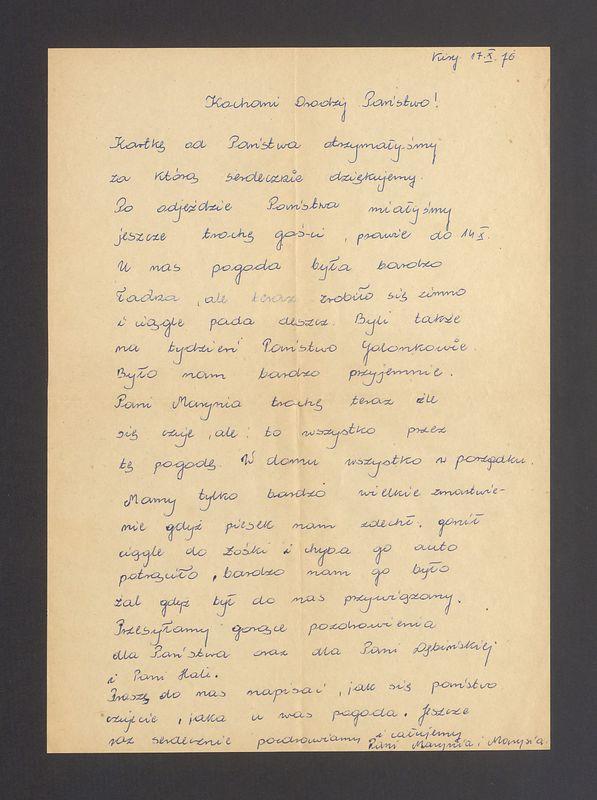 Kiry 17.X.76
Kochani Drodzy Państwo!
Kartkę od Państwa otrzymałyśmy
za którą serdecznie dziękujemy.
Po odjeździe Państwa miałyśmy
jeszcze trochę gości, prawie do 14 X.
U nas pogoda była bardzo
ładna, ale teraz zrobiło się zimno
i ciągle pada deszcz. Byli także
na tydzień Państwo Golonkowie.
Było nam bardzo przyjemnie.
Pani Marynia trochę teraz źle
się czuje, ale to wszystko przez
tę pogodę. W domu wszystko w porządku.
Mamy tylko bardzo wielkie zmartwie-
nie gdyż piesek nam zdechł. gonił
ciągle do Zośki i chyba go auto
potrąciło, bardzo nam go było
żal gdyż był do nas przywiązany.
Przesyłamy gorące pozdrowienia
dla Państwa oraz dla Pani Dębińskiej
i Pani Hali.
Proszę do nas napisać, jak się państwo
czujecie, jaka u was pogoda. Jeszcze
raz serdecznie pozdrawiamy i całujemy
Pani Marynia i Marysia.